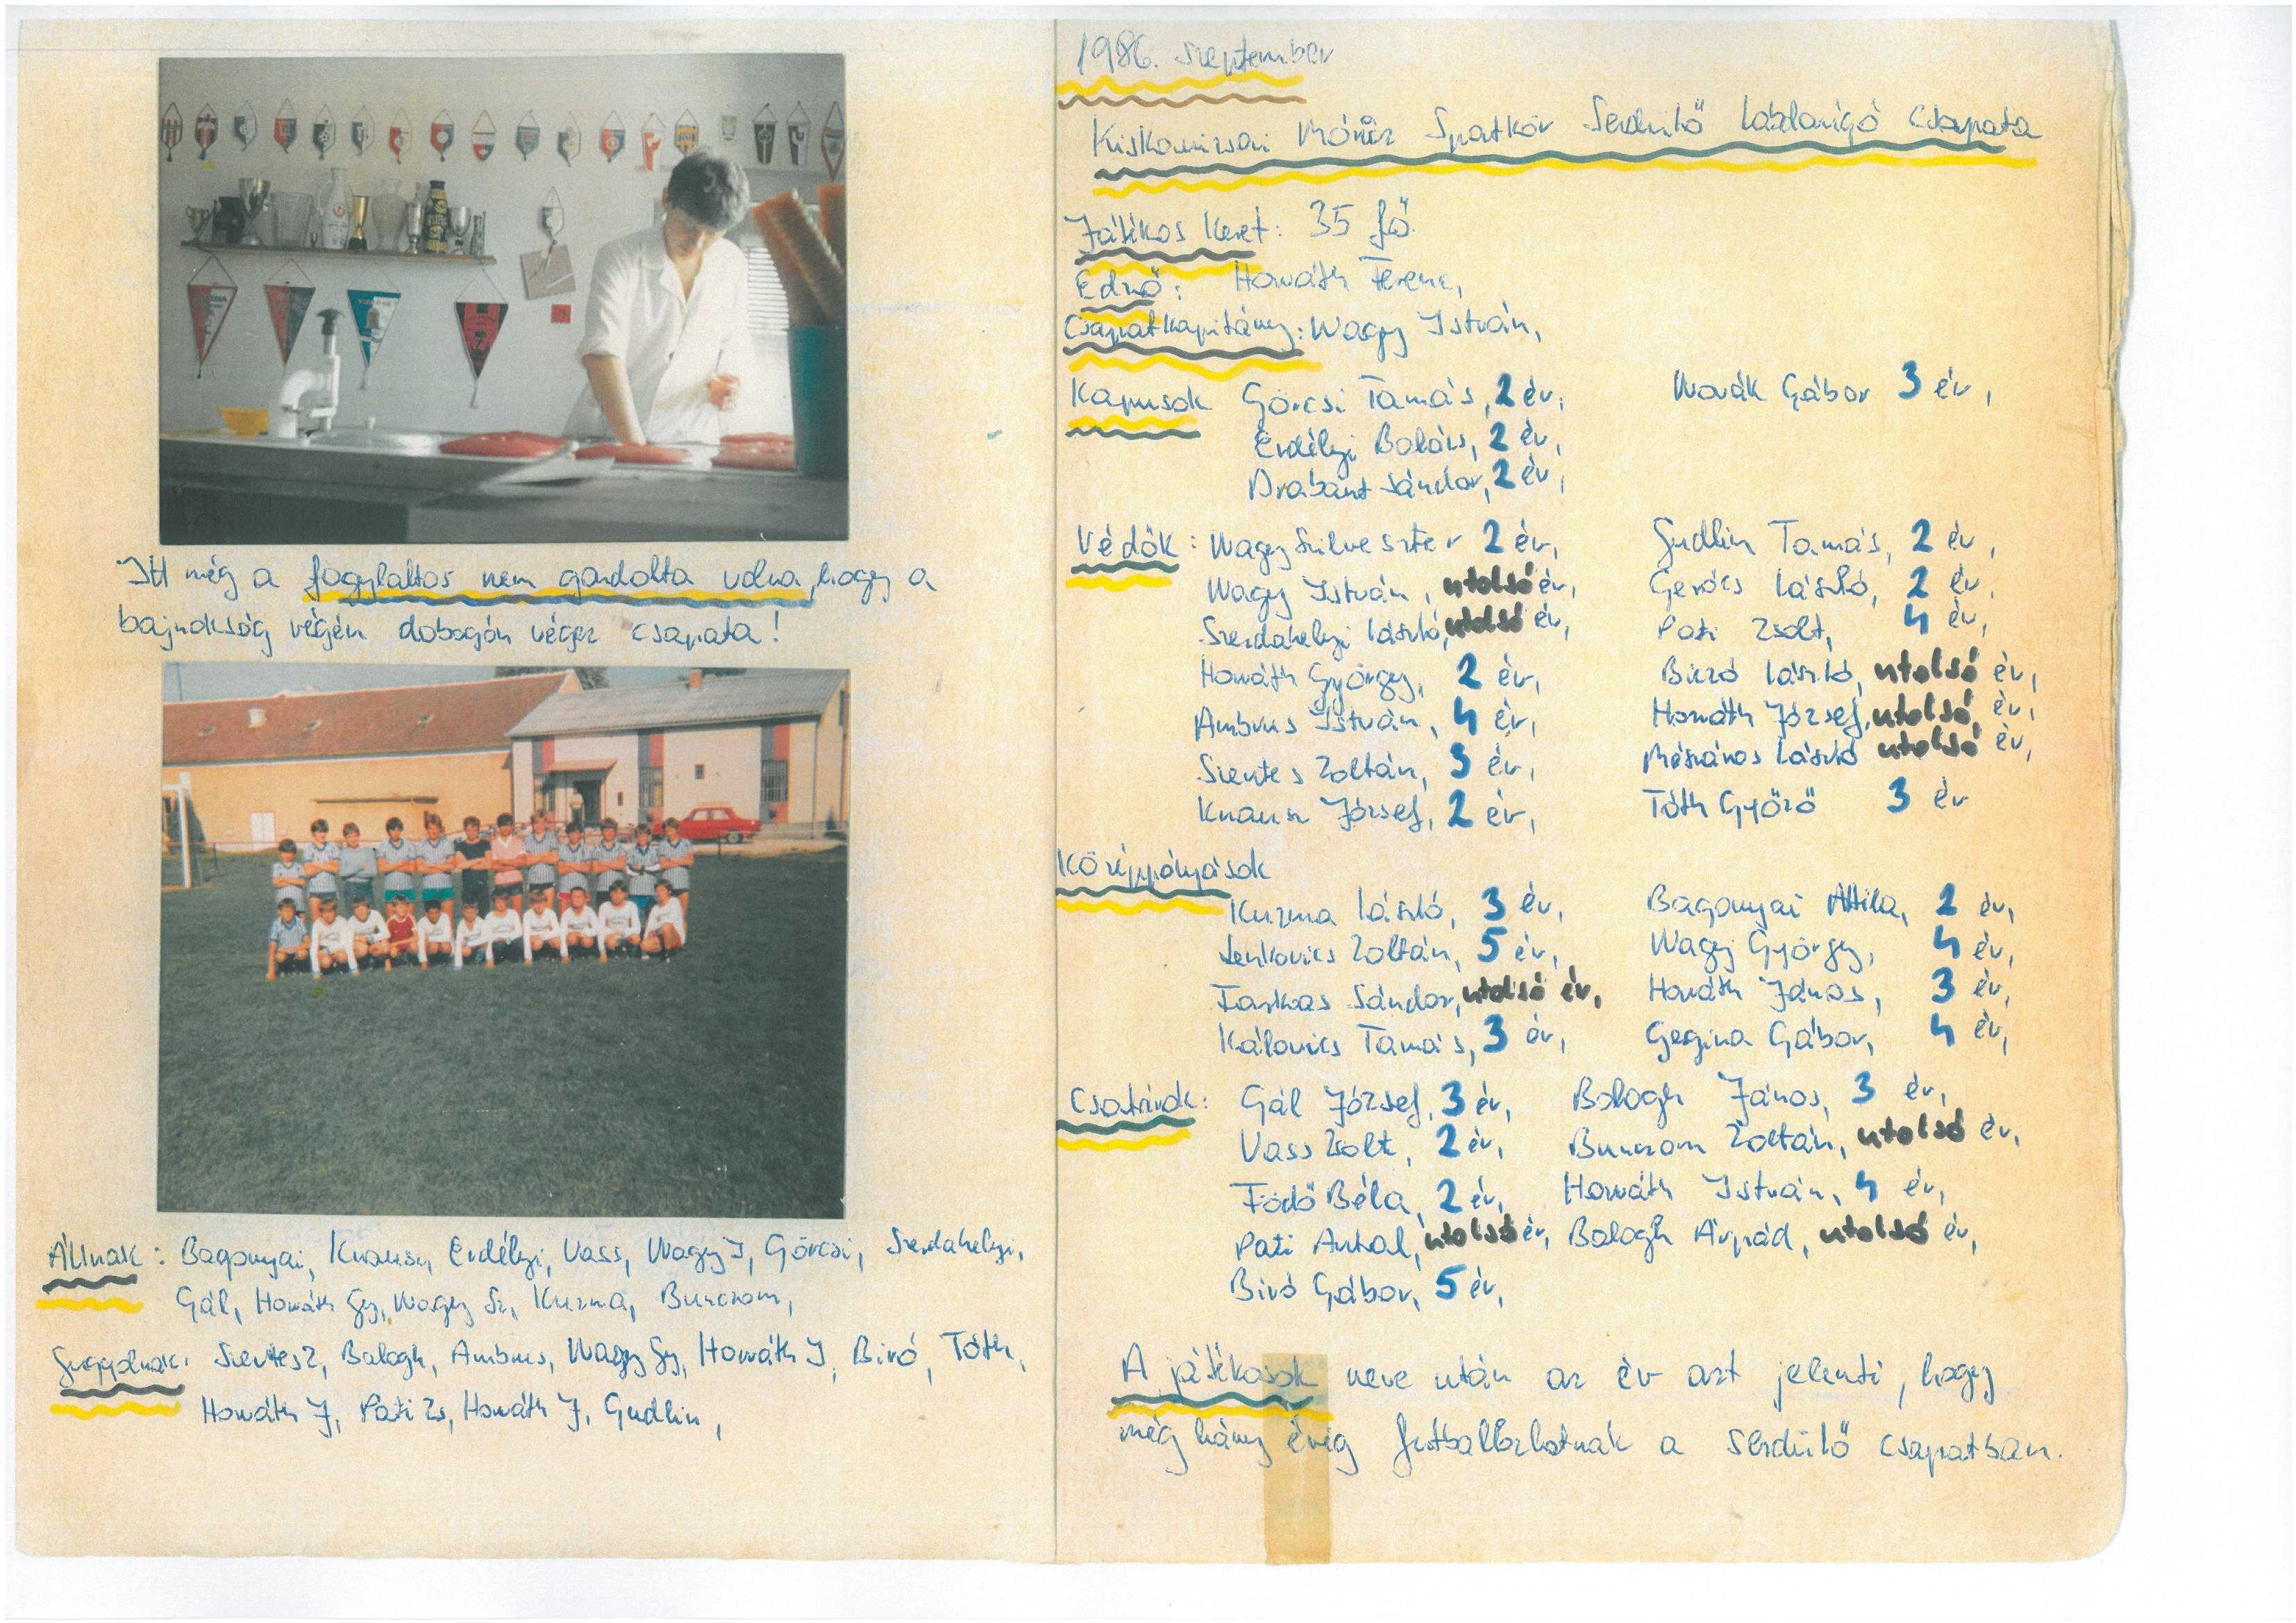 Itt még a fagylaltos nem gondolta volna, hogy a
bajnokság végén dobogón végez csapata!
Állnak: Bagonyai, Knausz, Erdélyi, Vass, Nagy I, Görcsi, Szerdahelyi,
Gál, Horváth Gy, Nagy Sz, Kuzma, Bunczom,
Guggolnak: Szentes Z, Balogh, Ambrus, Nagy Gy, Horváth I, Biró, Tóth,
Horváth J, Pati Zs, Horváth J, Gudlin,
1986. szeptember
Kiskomáromi Móricz Sportkör Serdülő labdarúgó csapata
Játékos keret: 35 fő.
Edző: Horváth Ferenc,
Csapatkapitány: Nagy István,
Kapusok Görcsi Tamás, 2 év, Novák Gábor 3 év,
Erdélyi Balázs, 2 év,
Brabant Sándor, 2 év,
Védők: Nagy Szilveszter 2 év, Gudlin Tamás, 2 év,
Nagy István, utolsó év, Gerócs László, 2 év,
Szerdahelyi László, utolsó év, Pati Zsolt, 4 év,
Horváth György, 2 év, László, utolsó év,
Ambrus István, 4 év, Horváth József, utolsó év,
Szentes Zoltán, 3 év, Mészáros László utolsó év,
Knausz József, 2 év, Tóth Győző 3 év
Középpályások
Kuzma László, 3 év, Bagonyai Attila, 2 év,
Lenkovics Zoltán, 5 év, Nagy György, 4 év,
Farkas Sándor, utolsó év, Horváth János, 3 év,
Kálovics Tamás, 3 év, Gergina Gábor, 4 év,
Csatárok: Gál József, 3 év, Balogh János, 3 év,
Vass Zsolt, 2 év, Bunczom Zoltán, utolsó év,
Födő Béla, 2 év, Horváth István, 4 év,
Pati Antal, utolsó év, Balogh Árpád, utolsó év,
Biró Gábor, 5 év,
A játékosok neve után az év azt jelenti, hogy
még hány évig futballozhatnak a serdülő csapatban.